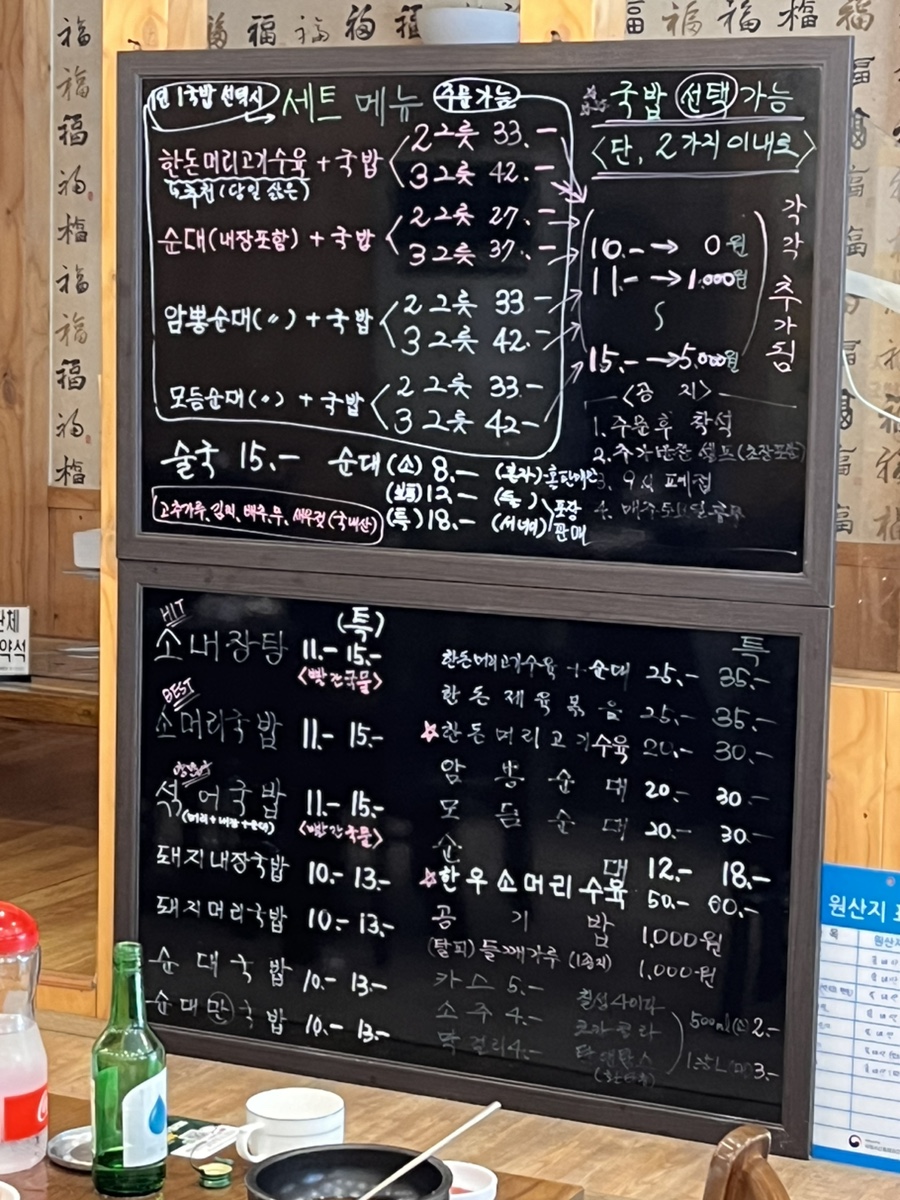 1인 1국밥 선택시 → 세트 메뉴 주문가능
한돈머리고기수육 + 국밥 < 2그릇 33.-
3그릇 42.-
↳추천 (당일 삶은)
순대(내장포함) + 국밥 < 2그릇 27.-
3그릇 37.-
암뽕순대(〃) + 국밥 < 2그릇 33-
3그릇 42.-
모듬순대(〃) + 국밥 < 2그릇 33.-
3그릇 42-
국밥 선택 가능
<단, 2가지 이내로>
10.- → 0원
11.- → 1,000원
15.- → 5,000원
각각 추가됨
<공 지>
1. 주문후 착석
2. 추가반찬 셀프 (초장포함)
3. 9시 폐점
4. 매주
술국 15.-
순대 (소) 8.-
(보통) 12-
(특) 18.-
포장판매
고추가루, 김치, 배추, 무, 새우젓 (국내산)
(특)
HIT
소내장탕 11.- 15.-
<빨간국물>
BEST
소머리국밥 11.- 15.-
섞어국밥 11.- 15.-
(머리+내장+순대) <빨간국물>
돼지내장국밥 10.- 13.-
돼지머리국밥 10.- 13.-
순대국밥 10.- 13.-
순대만국밥 10.- 13.-
특
한돈머리고기수육 + 순대 25.- 35.-
한돈제육볶음 25.- 35.-
☆한돈머리고기수육 20.- 30.-
암뽕순대 20.- 30.-
모듬순대 20.- 30.-
순대 12.- 18.-
☆한우소머리수육 50.- 60.-
공기밥 1,000원
(탈피) 들깨가루 (1종지) 1,000원
카스 5.-
소주 4.-
막걸리 4.-
칠성사이다
코카콜라
500ml(소) 2.-
1.5L 3.-
단체
약석
원산지 표
목
원산지
福